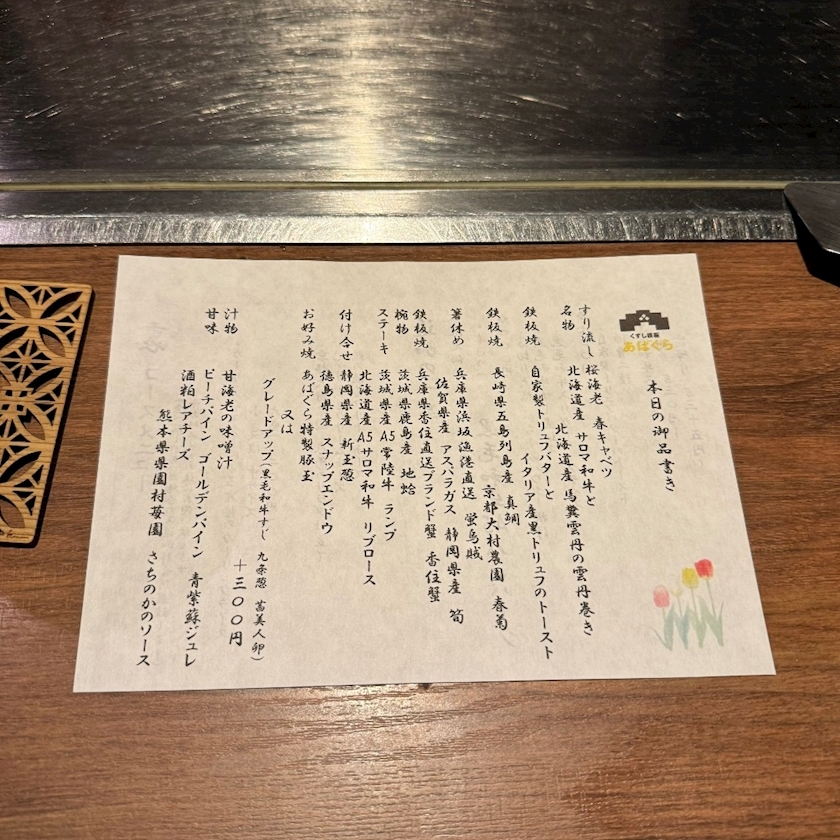 くずし鉄板
あばぐら
本日の御品書き
すり流し 桜海老 春キャベツ
名物 北海道産 サロマ和牛と
北海道産 馬糞雲丹の雲丹巻き
鉄板焼 自家製トリュフバターと
イタリア産黒トリュフのトースト
鉄板焼 長崎県五島列島産 真鯛
京都大村農園 春菊
箸休め 兵庫県浜坂漁港直送 蛍烏賊
佐賀県産 アスパラガス 静岡県産 筍
鉄板焼 兵庫県香住直送ブランド蟹 香住蟹
椀物 茨城県鹿島産 地蛤
ステーキ 茨城県産A5常陸牛 ランプ
北海道産A5サロマ和牛 リブロース
付け合せ 静岡県産 新玉葱
徳島県産 スナップエンドウ
お好み焼 あばぐら特製豚玉
又は
グレードアップ(黒毛和牛すじ 九条葱 茜美人卵)
+三〇〇円
汁物 甘海老の味噌汁
甘味 ピーチパイン ゴールデンパイン 青紫蘇ジュレ
酒粕レアチーズ
熊本県県園村苺園 さちのかのソース